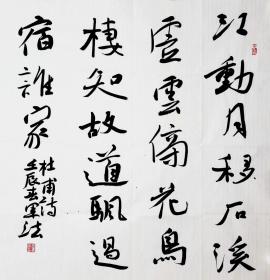 江動月移石溪
虛雲傍花鳥
棲知故道颿過
宿誰家
杜甫詩
壬辰春軍